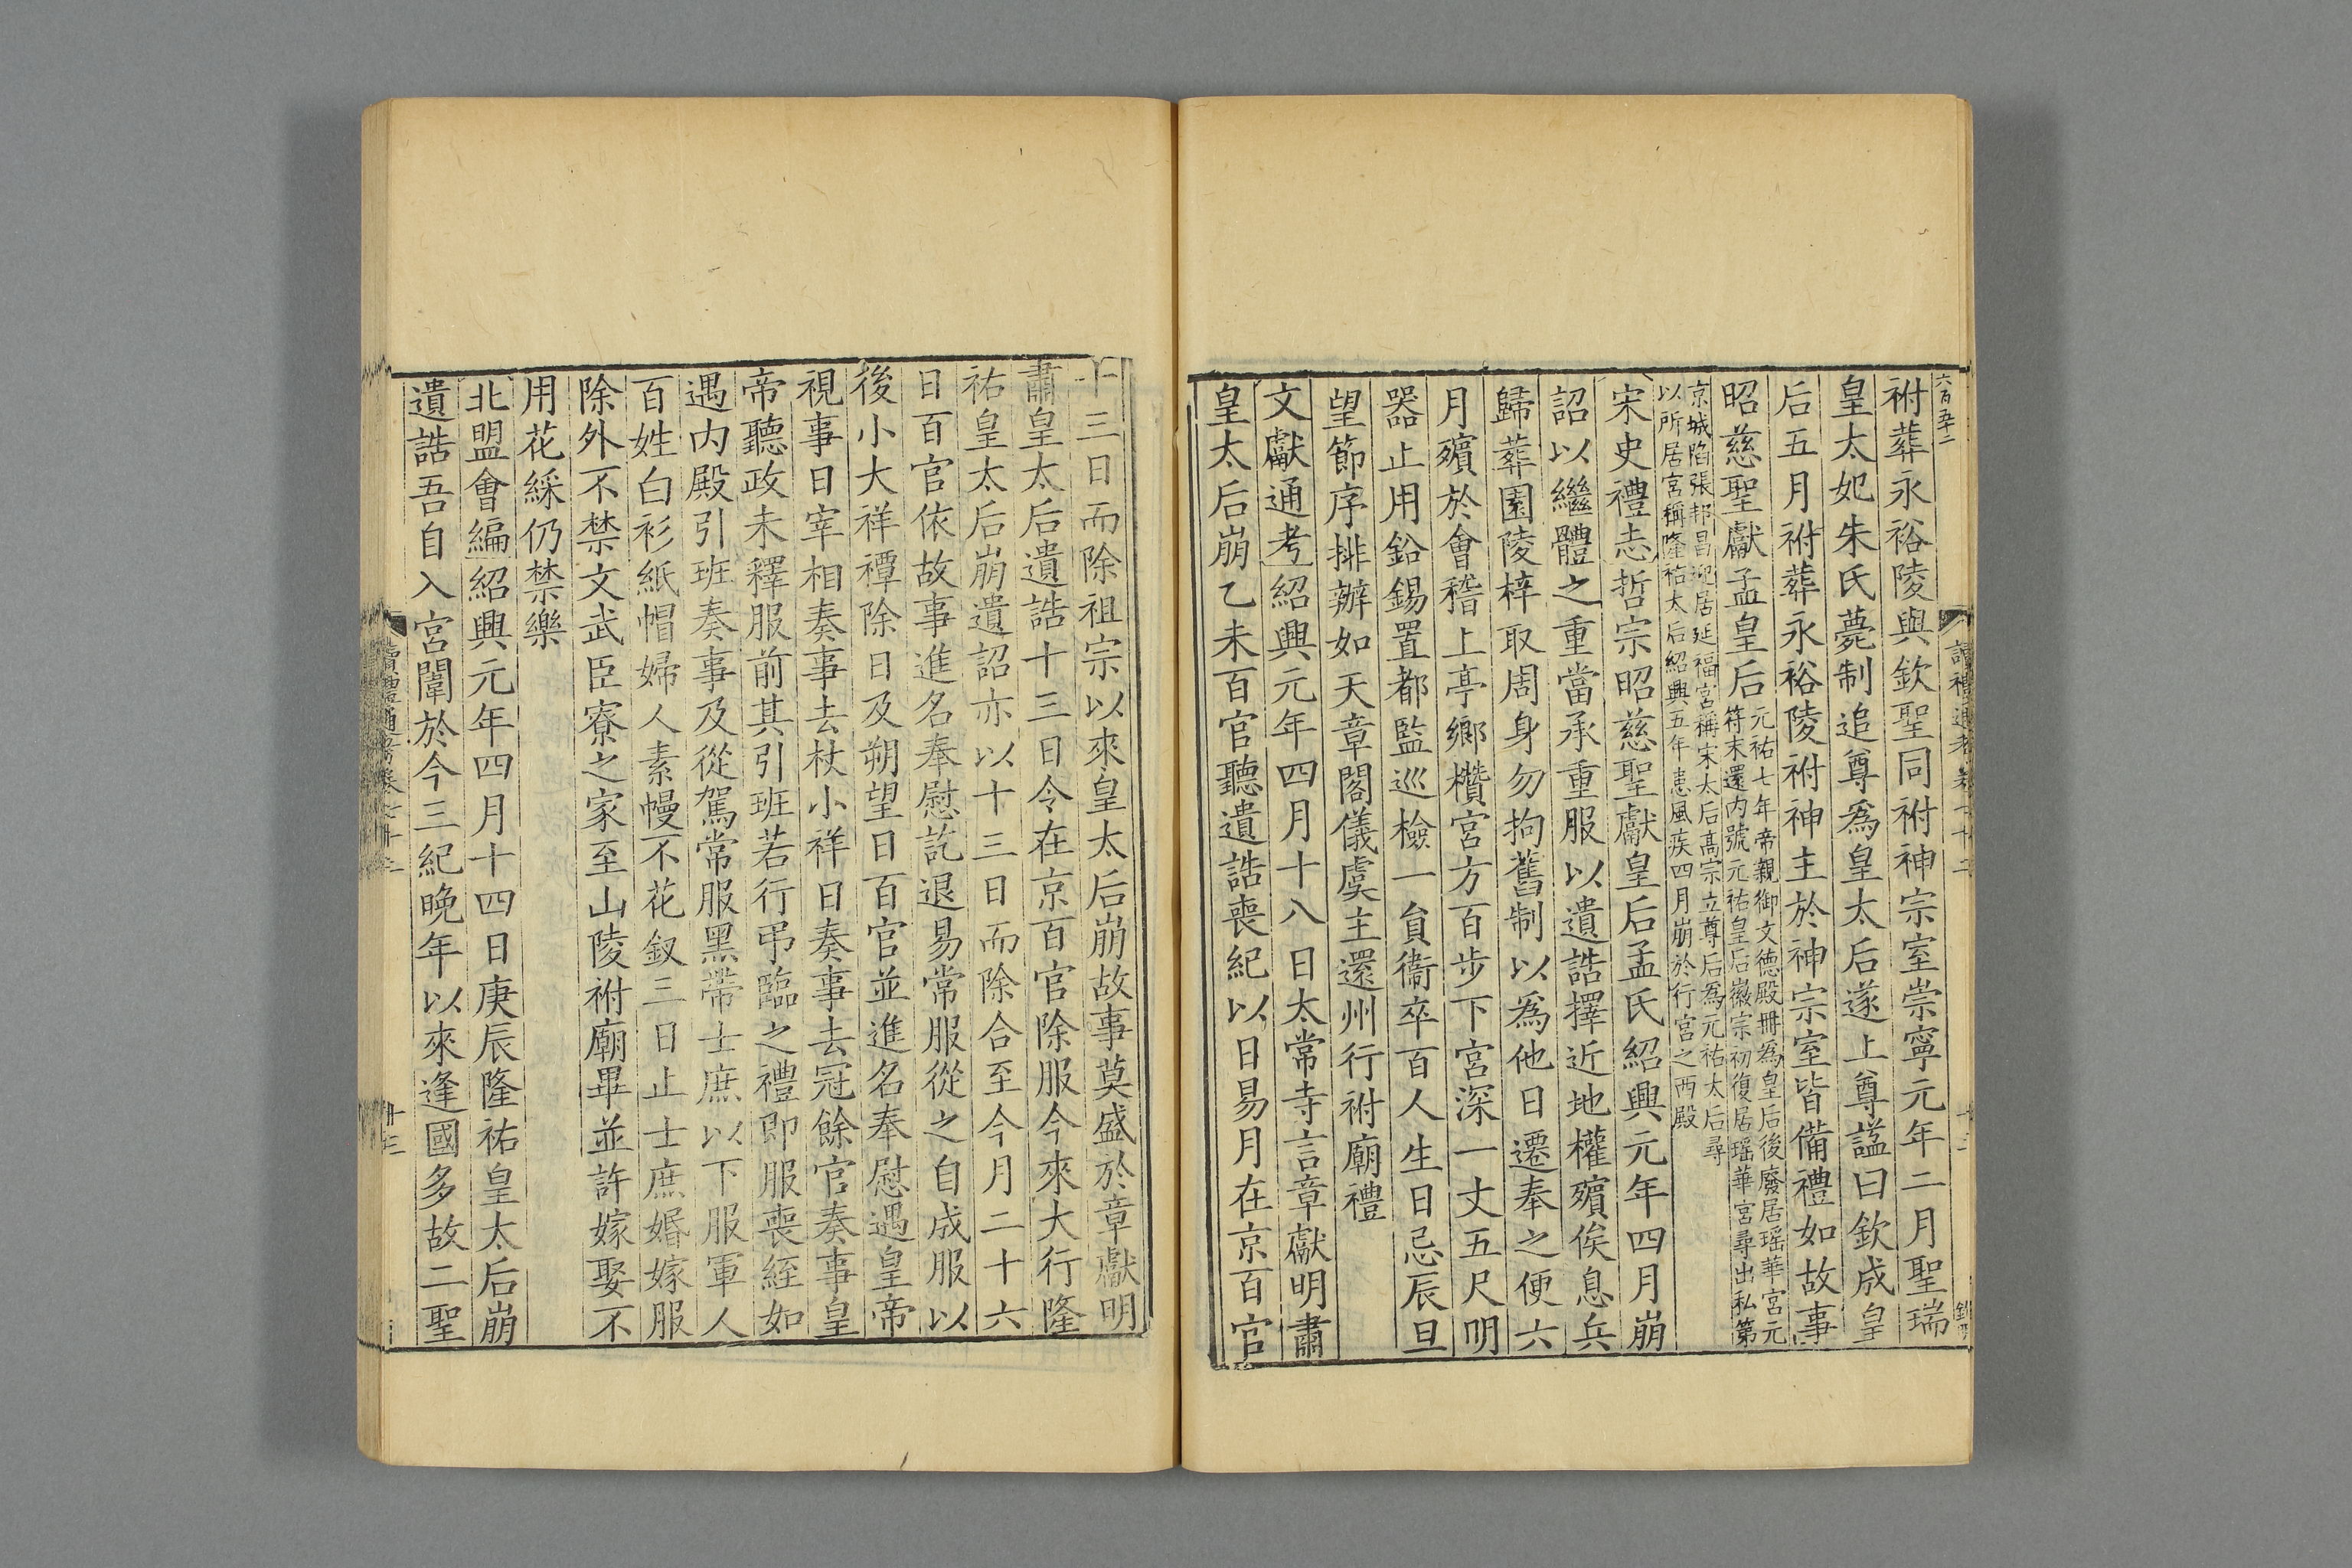 六百五十二
祔葬永裕陵與欽聖同祔神宗室崇寧元年二月聖瑞
皇太妃朱氏薨制追尊爲皇太后遂上尊諡曰欽成皇
后五月祔葬永裕陵祔神主於神宗室皆備禮如故事
昭慈聖獻孟皇后
元祐七年帝親御文德殿冊爲皇后後廢居瑶華宮元
符末還内號元祐皇后徽宗初復居瑶華宮尋出私第
京城陷張邦昌迎居延福宮稱宋太后髙宗立尊后爲元祐太后尋
以所居宮稱隆祐太后紹興五年患風疾四月崩於行宮之西殿
宋史禮志哲宗昭慈聖獻皇后孟氏紹興元年四月崩
詔以繼體之重當承重服以遺誥擇近地權殯俟息兵
歸葬園陵梓取周身勿拘舊制以爲他日遷奉之便六
月殯於會稽上亭鄉欑宮方百步下宮深一丈五尺明
器止用鉛錫置都監巡檢一貟衞卒百人生日忌辰旦
望節序排辦如天章閣儀虞主還州行祔廟禮
文獻通考紹興元年四月十八日太常寺言章獻明肅
皇太后崩乙未百官聽遺誥喪紀以日易月在京百官
十三日而除祖宗以來皇太后崩故事莫盛於章獻明
肅皇太后遺誥十三日令在京百官除服今來大行隆
祐皇太后崩遺詔亦以十三日而除合至今月二十六
日百官依故事進名奉慰訖退易常服從之自成服以
後小大祥禫除日及朔望日百官並進名奉慰遇皇帝
視事日宰相奏事去杖小祥日奏事去冠餘官奏事皇
帝聽政未釋服前其引班若行弔臨之禮即服喪絰如
遇内殿引班奏事及從駕常服黑帶士庶以下服軍人
百姓白衫紙帽婦人素幔不花釵三日止士庶婚嫁服
除外不禁文武臣寮之家至山陵祔廟畢並許嫁娶不
用花綵仍禁樂
北盟會編紹興元年四月十四日庚辰隆祐皇太后崩
遺誥吾自入宮闈於今三紀晩年以來逢國多故二聖
讀禮通考卷七十二
十三